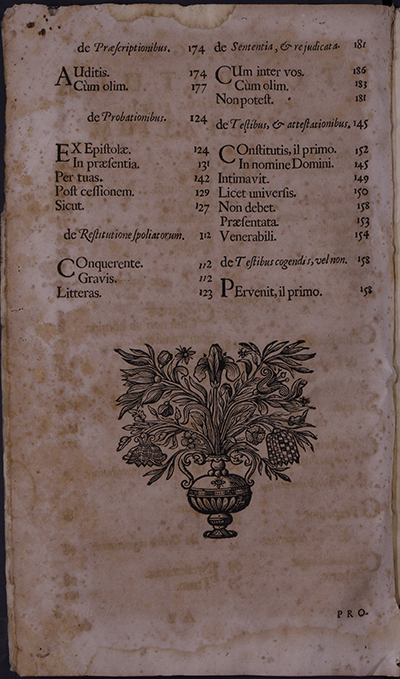 de Præscriptionibus. 174
AUditis. 174
Cùm olim. 177
de Probationibus. 124
EX Epistolæ. 124
In præsentia. 131
Per tuas. 142
Post cessionem. 129
Sicut. 127
de Restitutione spoliatorum. 112
COnquerente. 112
Gravis. 112
Litteras. 123
de Sententia, & re judicata. 181
CUm inter vos. 186
Cùm olim. 183
Non potest. 181
de Testibus, & attestationibus. 145
COnstitutis, il primo. 152
In nomine Domini. 145
Intimavit. 149
Licet universis. 150
Non debet. 158
Præsentata. 153
Venerabili. 154
de Testibus cogendis, vel non. 158
PErvenit, il primo. 158
PRO-